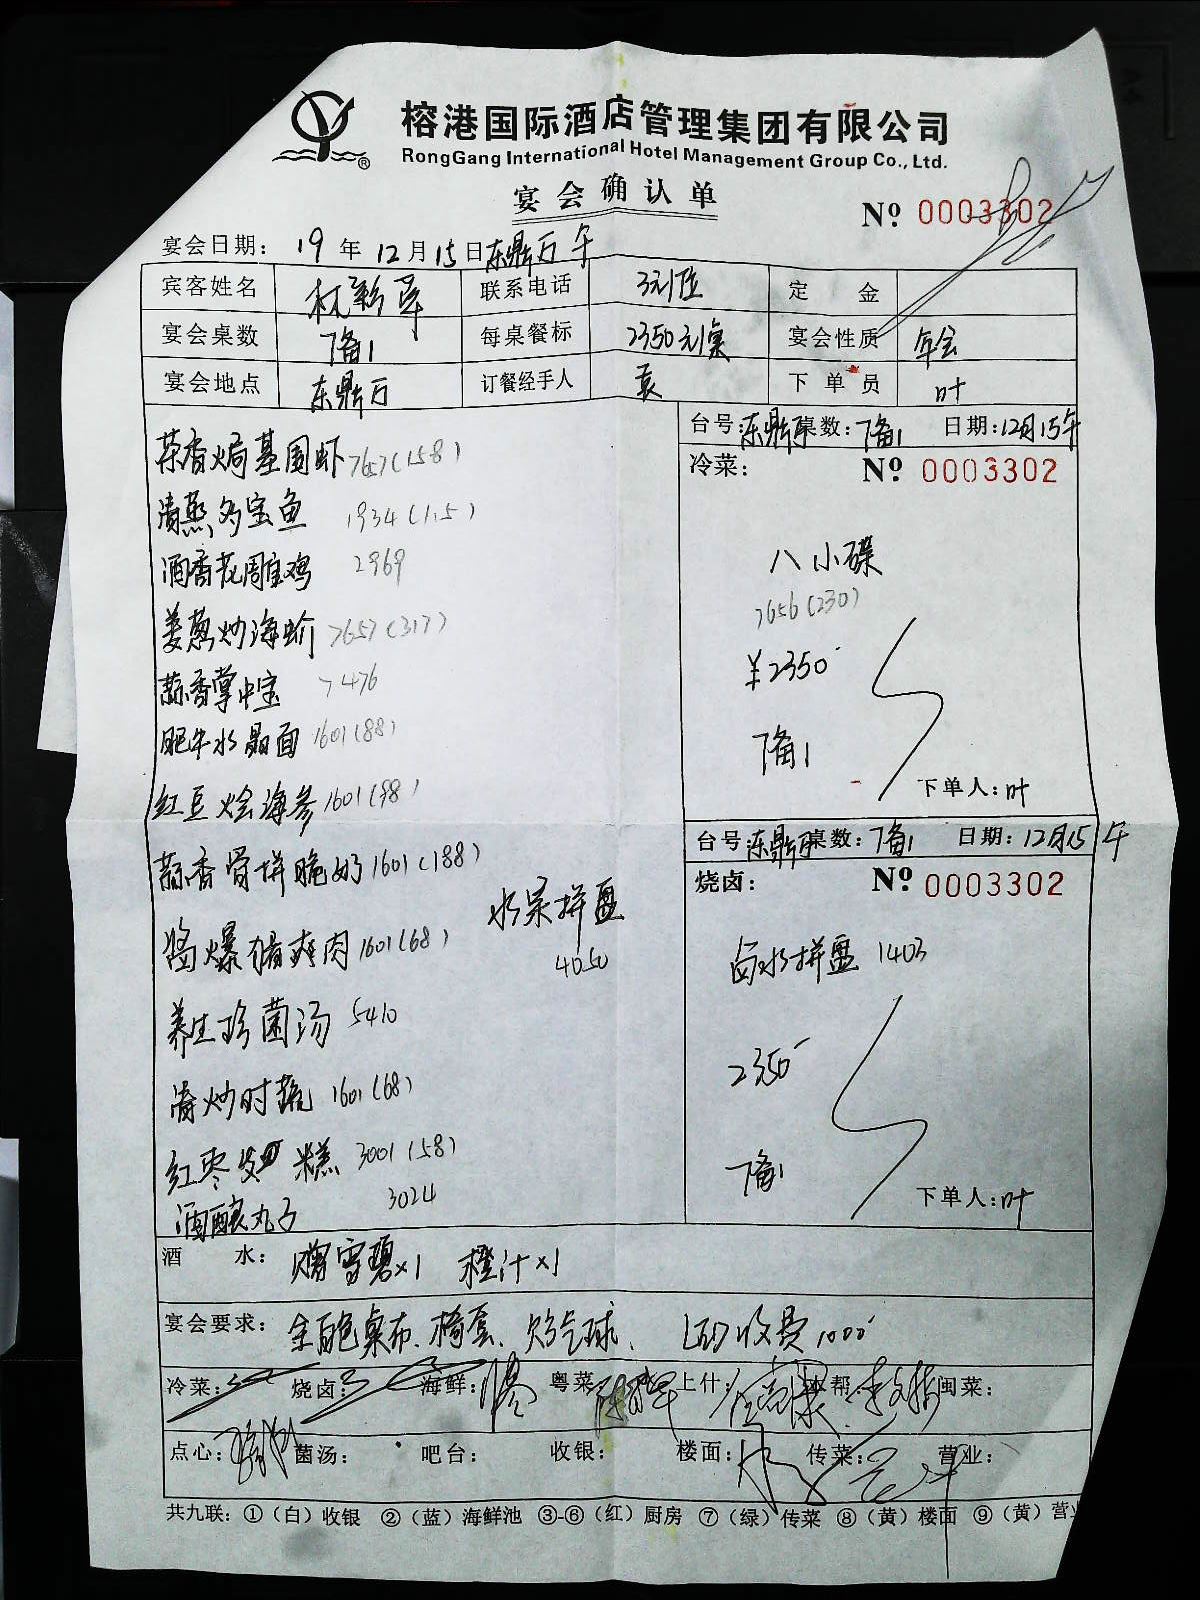 榕港国际酒店管理集团有限公司
RongGang International Hotel Management Group Co., Ltd.
宴会确认单
№ 0003302
宴会日期: 19年12月15日东鼎万 午
宾客姓名 林 联系电话 3元/位 定金
宴会桌数 7备1 每桌餐标 2350元/桌 宴会性质 年会
宴会地点 东鼎万 订餐经手人 袁 下单员 叶
台号: 东鼎 桌数: 7备1 日期: 12月15午
冷菜: № 0003302
茶香焗基围虾 7657(158)
清蒸多宝鱼 1934(1.5)
酒香花雕鸡 2969
姜葱炒海蚧 7657(317)
蒜香掌中宝 7476
肥牛水晶面 1601(88)
红豆烩海参 1601(98)
蒜香骨拼脆奶 1601(188)
酱爆猪爽肉 1601(68)
水果拼盘
4050
养生珍菌汤 5410
清炒时蔬 1601(68)
红枣 糕 3001(58)
酒酿丸子 3024
八小碟
7656(230)
¥2350
7备1
下单人: 叶
台号: 东鼎 桌数: 7备1 日期: 12月15午
烧卤: № 0003302
卤水拼盘 1403
2350
7备1
下单人: 叶
酒水: 赠雪碧×1 橙汁×1
宴会要求: 金色桌布、椅套、 气球、 LED收费1000
冷菜: 烧卤: 海鲜: 粤菜: 上什: 水帮: 闽菜:
点心: 菌汤: 吧台: 收银: 楼面: 传菜: 营业:
共九联: ①(白)收银 ②(蓝)海鲜池 ③-⑥(红)厨房 ⑦(绿)传菜 ⑧(黄)楼面 ⑨(黄)营业